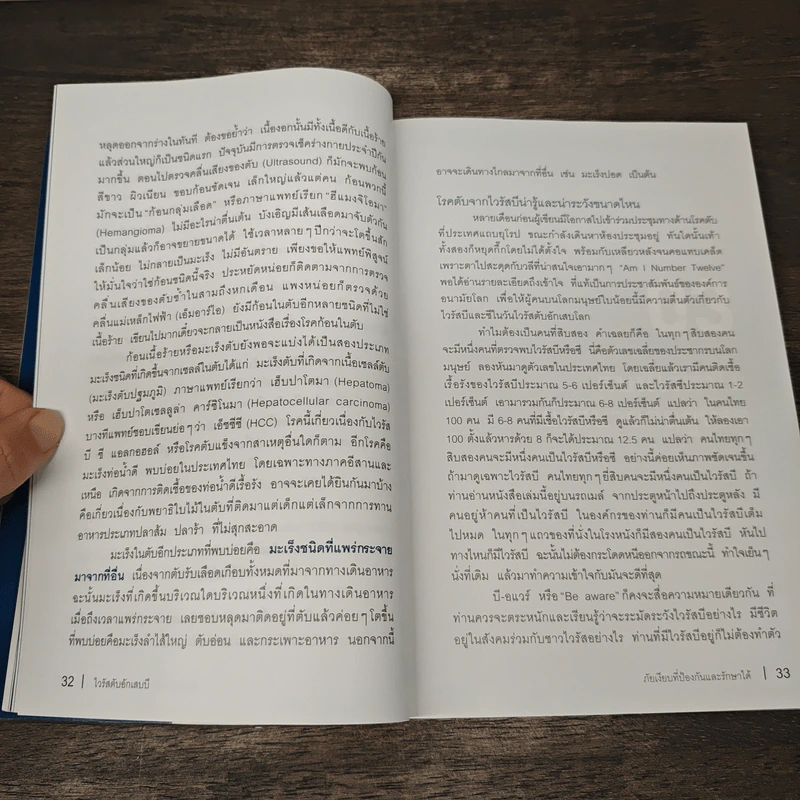 หลุดออกจากร่างในทันที ต้องขอย้ำว่า เนื้องอกนั้นมีทั้งเนื้อดีกับเนื้อร้าย
แล้วส่วนใหญ่ก็เป็นชนิดแรก ปัจจุบันมีการตรวจเช็คร่างกายประจำปีกัน
มากขึ้น ตอนไปตรวจคลื่นเสียงของตับ (Ultrasound) ก็มักจะพบก้อน
สีขาว ผิวเนียน ขอบก้อนชัดเจน เล็กใหญ่แล้วแต่คน ก้อนพวกนี้
มักจะเป็น “ก้อนกลุ่มเลือด” หรือภาษาแพทย์เรียก “ฮีแมงจิโอมา”
(Hemangioma) ไม่มีอะไรน่าตื่นเต้น บังเอิญมีเส้นเลือดมาจับตัวกัน
เป็นกลุ่มแล้วก็อาจขยายขนาดได้ ใช้เวลาหลายๆ ปีกว่าจะโตขึ้นสัก
เล็กน้อย ไม่กลายเป็นมะเร็ง ไม่มีอันตราย เพียงขอให้แพทย์พิสูจน์
ให้มั่นใจว่าใช่ก้อนชนิดนี้จริง ประหยัดหน่อยก็ติดตามจากการตรวจ
คลื่นเสียงของตับซ้ำในสามถึงหกเดือน แพงหน่อยก็ตรวจด้วย
คลื่นแม่เหล็กไฟฟ้า (เอ็มอาร์ไอ) ยังมีก้อนในตับอีกหลายชนิดที่ไม่ใช่
เนื้อร้าย เขียนไปมากเดี๋ยวจะกลายเป็นหนังสือเรื่องโรคก้อนในตับ
ก้อนเนื้อร้ายหรือมะเร็งตับยังพอจะแบ่งได้เป็นสองประเภท
มะเร็งชนิดที่เกิดขึ้นจากเซลล์ในตับได้แก่ มะเร็งตับที่เกิดจากเนื้อเซลล์ตับ
(มะเร็งตับปฐมภูมิ) ภาษาแพทย์เรียกว่า เฮ็บปาโตมา (Hepatoma)
หรือ เฮ็บปาโตเซลลูล่า คาร์ซิโนมา (Hepatocellular carcinoma)
บางทีแพทย์ชอบเขียนย่อๆ ว่า เอ็ชซีซี (HCC) โรคนี้เกี่ยวเนื่องกับไวรัส
บี ซี แอลกอฮอล์ หรือโรคตับแข็งจากสาเหตุอื่นใดก็ตาม อีกโรคคือ
มะเร็งท่อน้ำดี พบบ่อยในประเทศไทย โดยเฉพาะทางภาคอีสานและ
เหนือ เกิดจากการติดเชื้อของท่อน้ำดีเรื้อรัง อาจจะเคยได้ยินกันมาบ้าง
คือเกี่ยวเนื่องกับพยาธิใบไม้ในตับที่ติดมาแต่เด็กแต่เล็กจากการทาน
อาหารประเภทปลาส้ม ปลาร้า ที่ไม่สุกสะอาด
มะเร็งในตับอีกประเภทที่พบบ่อยคือ มะเร็งชนิดที่แพร่กระจาย
มาจากที่อื่น เนื่องจากตับรับเลือดเกือบทั้งหมดที่มาจากทางเดินอาหาร
ฉะนั้นมะเร็งที่เกิดขึ้นบริเวณใดบริเวณหนึ่งที่เกิดในทางเดินอาหาร
เมื่อถึงเวลาแพร่กระจาย เลยชอบหลุดมาติดอยู่ที่ตับแล้วค่อยๆ โตขึ้น
ที่พบบ่อยคือมะเร็งลำไส้ใหญ่ ตับอ่อน และกระเพาะอาหาร นอกจากนี้
32 | ไวรัสตับอักเสบบี
อาจจะเดินทางไกลมาจากที่อื่น เช่น มะเร็งปอด เป็นต้น
โรคตับจากไวรัสบีน่ารู้และน่าระวังขนาดไหน
หลายเดือนก่อนผู้เขียนมีโอกาสไปเข้าร่วมประชุมทางด้านโรคตับ
ที่ประเทศแถบยุโรป ขณะกำลังเดินหาห้องประชุมอยู่ ทันใดนั้นเท้า
ทั้งสองก็หยุดกึ๊กโดยไม่ได้ตั้งใจ พร้อมกับเหลียวหลังจนคอแทบเคล็ด
เพราะตาไปสะดุดกับวลีที่น่าสนใจเอามากๆ “Am I Number Twelve”
พอได้อ่านรายละเอียดถึงเข้าใจ ที่แท้เป็นการประชาสัมพันธ์ขององค์การ
อนามัยโลก เพื่อให้ผู้คนบนโลกมนุษย์ใบน้อยนี้มีความตื่นตัวเกี่ยวกับ
ไวรัสบีและซีในวันไวรัสตับอักเสบโลก
ทำไมต้องเป็นคนที่สิบสอง คำเฉลยก็คือ ในทุกๆ สิบสองคน
จะมีหนึ่งคนที่ตรวจพบไวรัสบีหรือซี นี่คือตัวเลขเฉลี่ยของประชากรบนโลก
มนุษย์ ลองหันมาดูตัวเลขในประเทศไทย โดยเฉลี่ยแล้วเรามีคนติดเชื้อ
เรื้อรังของไวรัสบีประมาณ 5-6 เปอร์เซ็นต์ และไวรัสซีประมาณ 1-2
เปอร์เซ็นต์ เอามารวมกันก็ประมาณ 6-8 เปอร์เซ็นต์ แปลว่า ในคนไทย
100 คน มี 6-8 คนที่มีเชื้อไวรัสบีหรือซี ดูแล้วก็ไม่น่าตื่นเต้น ให้ลองเอา
100 ตั้งแล้วหารด้วย 8 ก็จะได้ประมาณ 12.5 คน แปลว่า คนไทยทุกๆ
สิบสองคนจะมีหนึ่งคนเป็นไวรัสบีหรือซี อย่างนี้ค่อยเห็นภาพชัดเจนขึ้น
ถ้ามาดูเฉพาะไวรัสบี คนไทยทุกๆ ยี่สิบคนจะมีหนึ่งคนเป็นไวรัสบี ถ้า
ท่านอ่านหนังสือเล่มนี้อยู่บนรถเมล์ จากประตูหน้าไปถึงประตูหลัง มี
คนอยู่ห้าคนที่เป็นไวรัสบี ในองค์กรของท่านก็มีคนเป็นไวรัสบีเต็ม
ไปหมด ในทุกๆ แถวของที่นั่งในโรงหนังก็มีสองคนเป็นไวรัสบี หันไป
ทางไหนก็มีไวรัสบี ฉะนั้นไม่ต้องกระโดดหนีออกจากรถขณะนี้ ทำใจเย็นๆ
นั่งที่เดิม แล้วมาทำความเข้าใจกับมันจะดีที่สุด
บี-อแวร์ หรือ “Be aware” ก็คงจะสื่อความหมายเดียวกัน ที่
ท่านควรจะตระหนักและเรียนรู้ว่าจะระมัดระวังไวรัสบีอย่างไร มีชีวิต
อยู่ในสังคมร่วมกับชาวไวรัสอย่างไร ท่านที่มีไวรัสบีอยู่ก็ไม่ต้องทำตัว
ภัยเงียบที่ป้องกันและรักษาได้ | 33